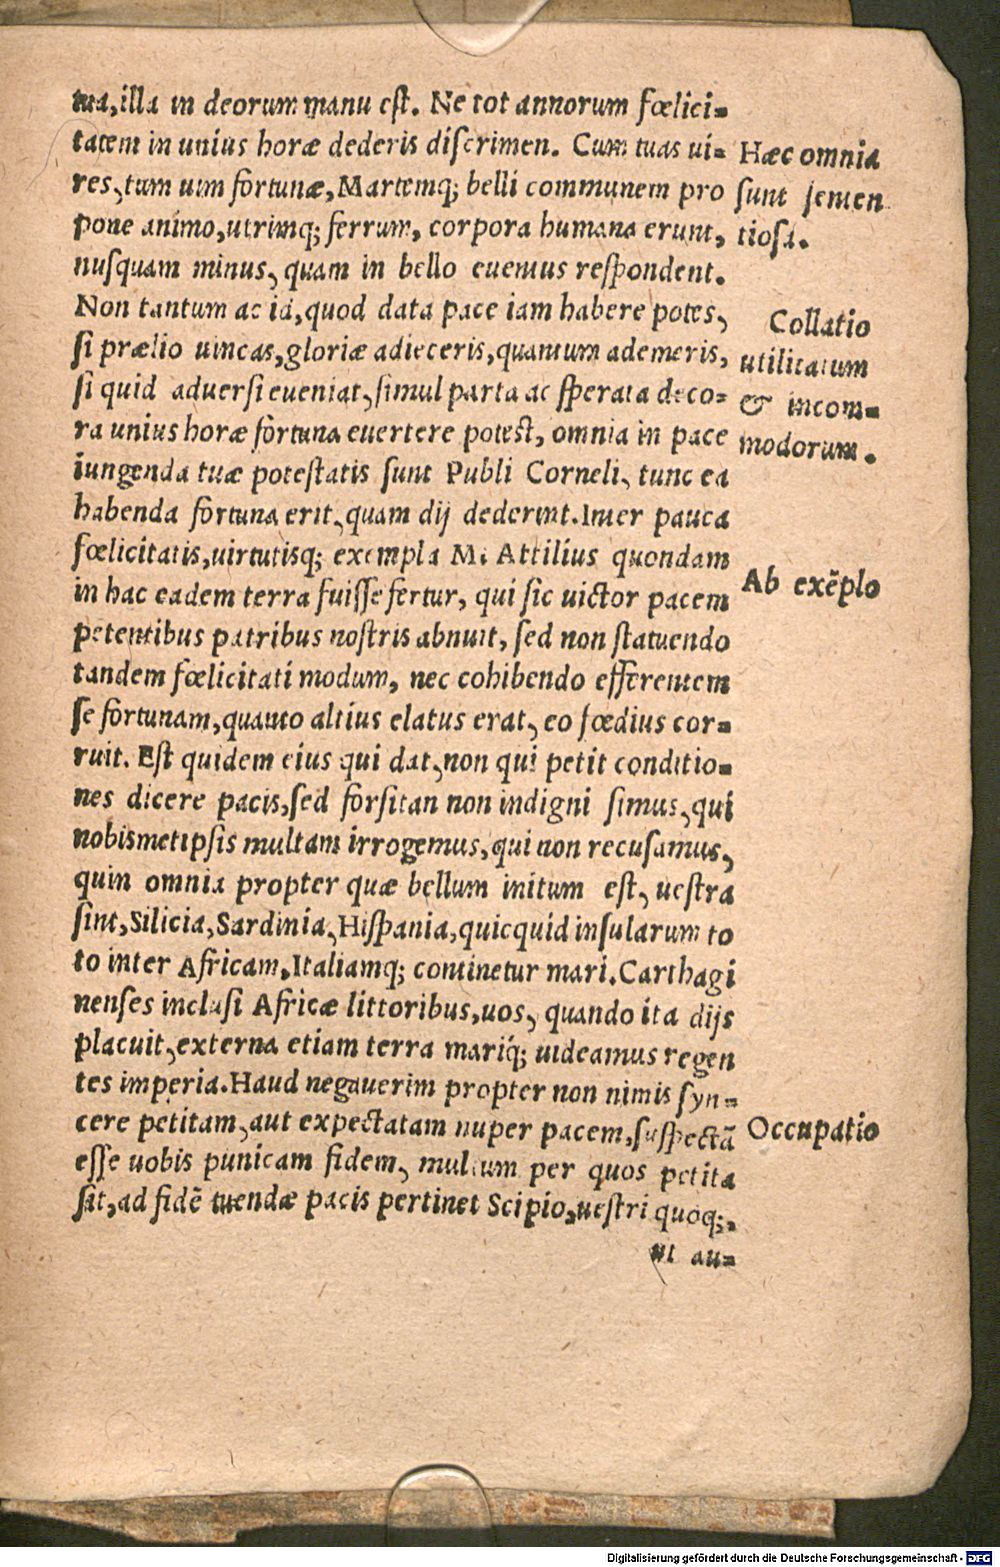 tua, illa in deorum manu est. Ne tot annorum fœlici=
tatem in unius horæ dederis discrimen. Cum tuas ui=
res, tum uim fortunæ, Martemq; belli communem pro
pone animo, utrimq; ferrum, corpora humana erunt,
nusquam minus, quam in bello euentus respondent.
Non tantum ac id, quod data pace iam habere potes,
si prælio uincas, gloriæ adieceris, quantum ademeris,
si quid aduersi eueniat, simul parta ac sperata deco=
ra unius horæ fortuna euertere potest, omnia in pace
iungenda tuæ potestatis sunt Publi Corneli, tunc ea
habenda fortuna erit, quam dij dederint. Inter pauca
fœlicitatis, uirtutisq; exempla M. Attilius quondam
in hac eadem terra fuisse fertur, qui sic uictor pacem
petentibus patribus nostris abnuit, sed non statuendo
tandem fœlicitati modum, nec cohibendo efferentem
se fortunam, quanto altius elatus erat, eo fœdius cor=
ruit. Est quidem eius qui dat, non qui petit conditio=
nes dicere pacis, sed forsitan non indigni simus, qui
nobismetipsis multam irrogemus, qui non recusamus,
quin omnia propter quæ bellum initum est, uestra
sint, Silicia, Sardinia, Hispania, quicquid insularum to
to inter Africam, Italiamq; continetur mari. Carthagi
nenses inclusi Africæ littoribus, uos, quando ita dijs
placuit, externa etiam terra mariq́; uideamus regen
tes imperia. Haud negauerim propter non nimis syn=
cere petitam, aut expectatam nuper pacem, suspectā
esse uobis punicam fidem, multum per quos petita
sit, ad fidē tuendæ pacis pertinet Scipio, uestri quoq;,
ut au=
Hæc omnia
sunt senten
tiosa.
Collatio
utilitatum
& incom=
modorum.
Ab exēplo
Occupatio
Digitalisierung gefördert durch die Deutsche Forschungsgemeinschaft - DFG